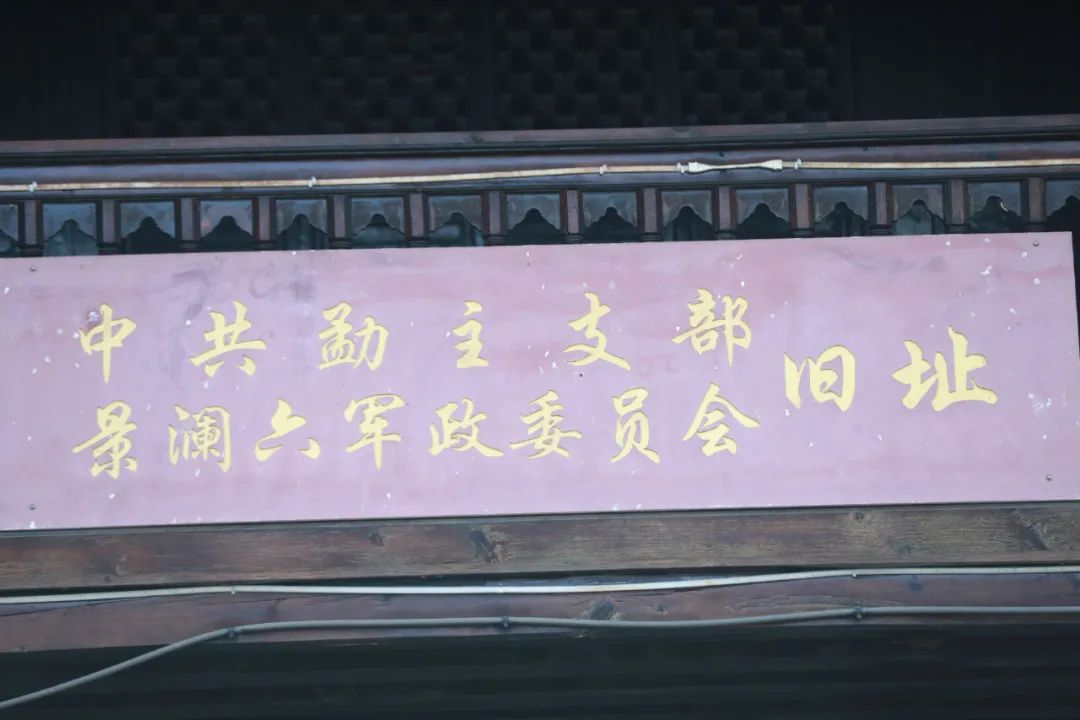 中共勐主支部
景澜六军政委员会
旧址